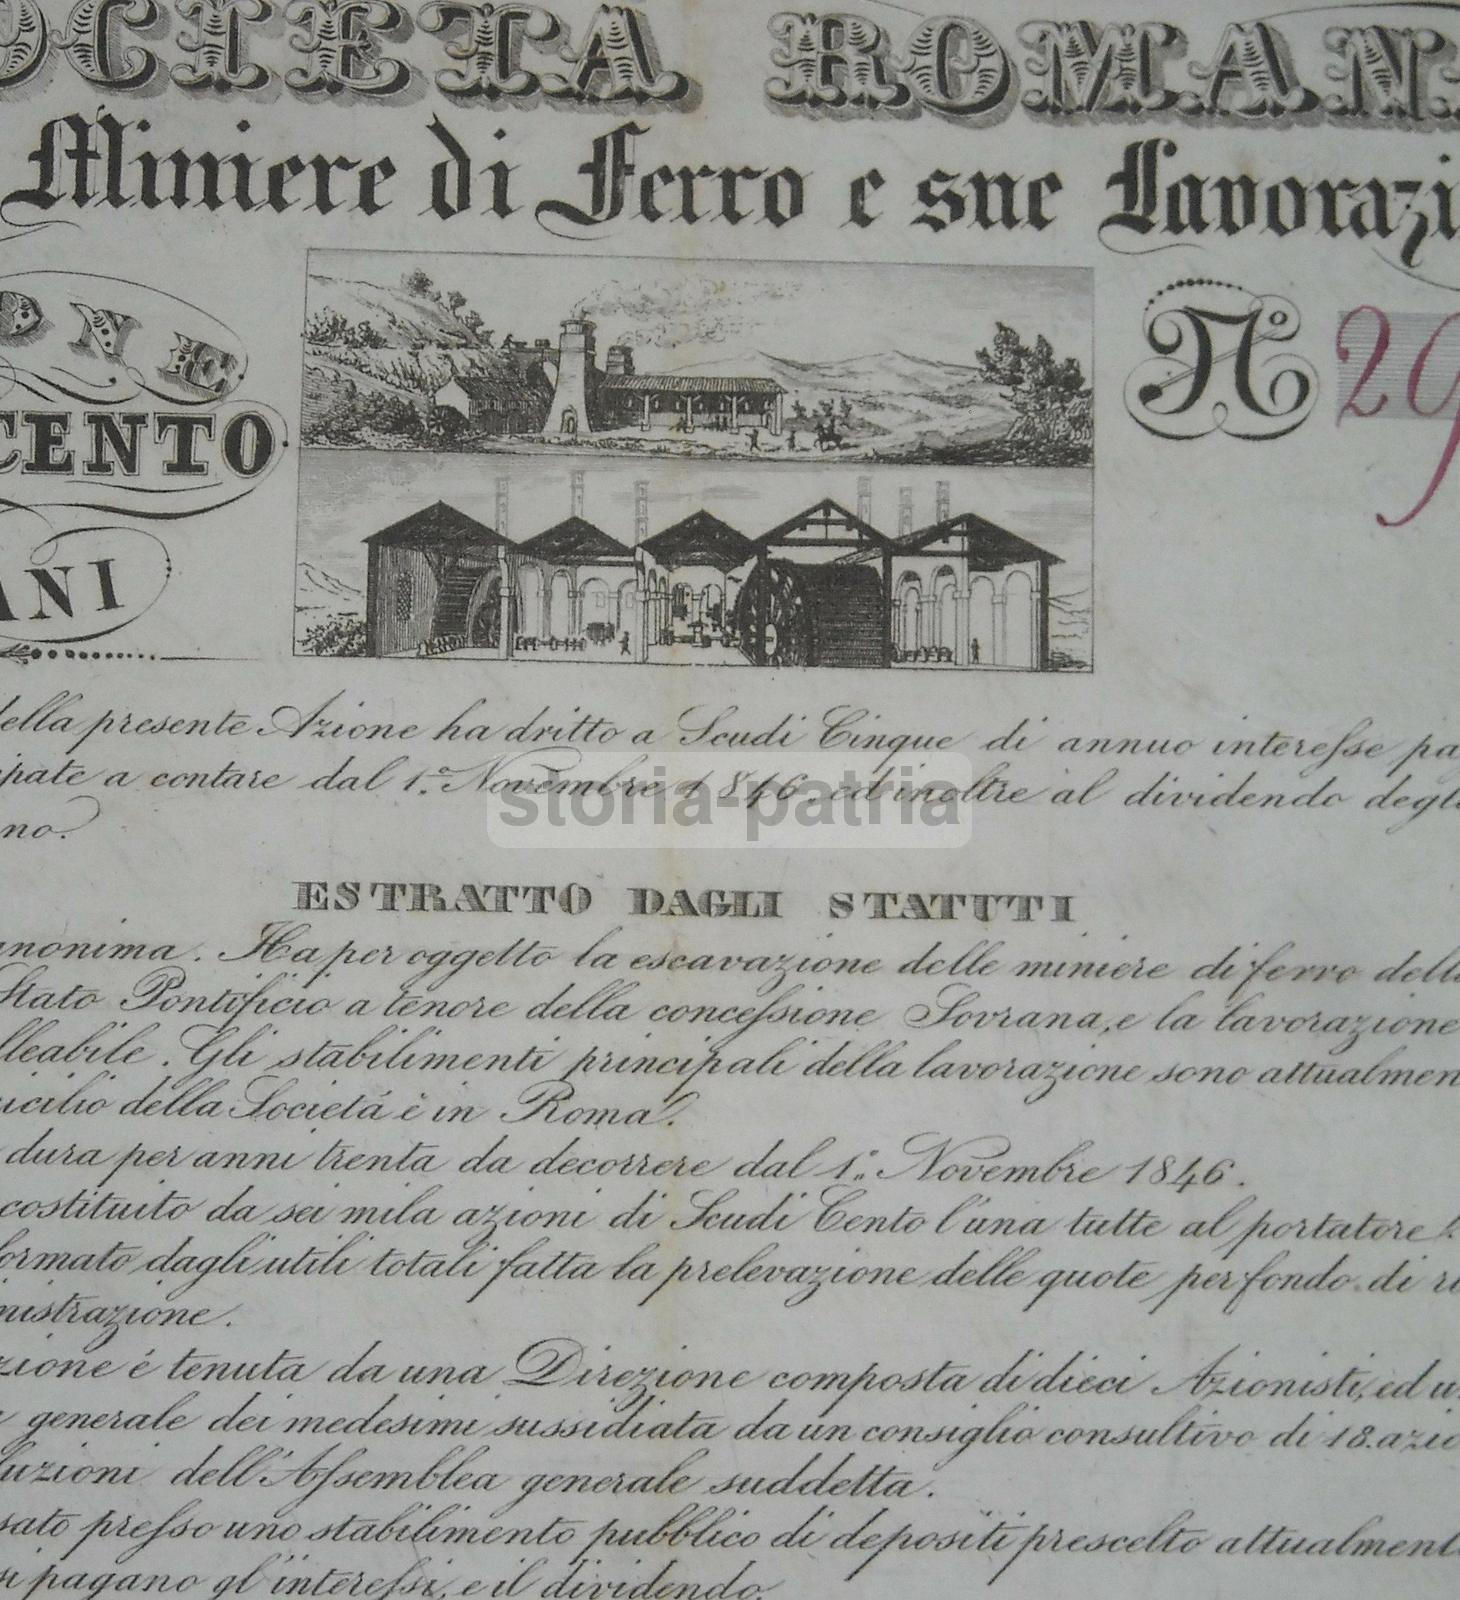 OCIETÀ ROMAN
Miniere di Ferro e sue Lavorazi
ONE
CENTO
ANI
N.º 29
della presente Azione ha dritto a Scudi Cinque di annuo interesse pa
ipate a contare dal 1.º Novembre 1846. ed inoltre al dividendo degl
no.
storia-patria
ESTRATTO DAGLI STATUTI
anonima. Ha per oggetto la escavazione delle miniere di ferro dell
Stato Pontificio a tenore della concessione Sovrana, e la lavorazione
lleabile. Gli stabilimenti principali della lavorazione sono attualmen
icilio della Societá é in Roma.
dura per anni trenta da decorrere dal 1.º Novembre 1846.
costituito da sei mila azioni di Scudi Cento l'una tutte al portatore
formato dagli utili totali fatta la prelevazione delle quote per fondo di ri
nistrazione.
zione é tenuta da una Direzione composta di dieci Azionisti, ed u
generale dei medesimi sussidiata da un consiglio consultivo di 18. azi
luzioni dell'Assemblea generale suddetta.
sato presso uno stabilimento pubblico di depositi prescelto attualment
si pagano gl'interessi, e il dividendo.